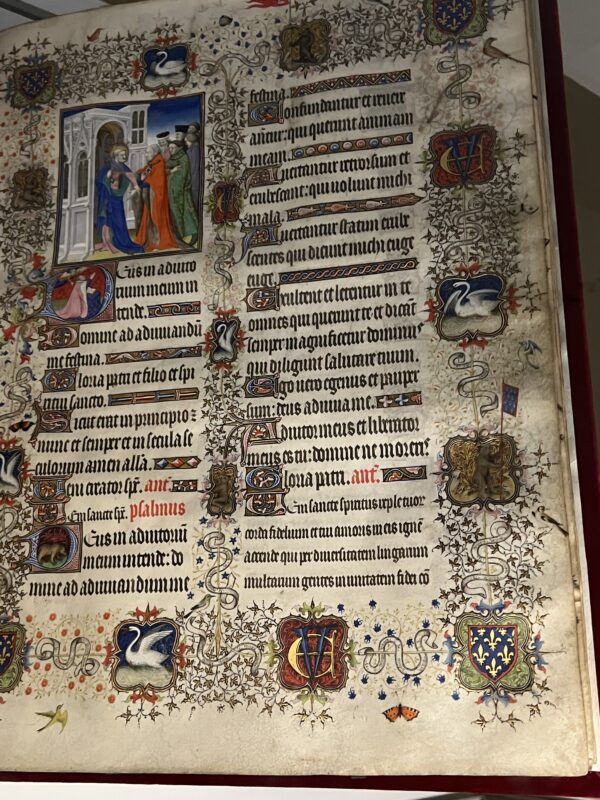 Deus in adiuto
rium meum in
tende.
Domine ad adiuuandū
me festina.
Gloria patri et filio et spi
ritui sancto.
Sicut erat in principio:
nunc et semper et in secula se
culorum amen all'a.
Veni creator sp̄c. an̄t.
Veni sancte sp̄c. psalmus
Deus in adiutoriū
meum intende: do
mine ad adiuuandum me
festina.
Confundantur et reuere
antur: qui querunt animam
meam.
Auertantur retrorsum et
erubescant: qui uolunt michi
mala.
Auertantur statim erube
scentes qui dicunt michi euge
euge.
Exultent et letentur in te
omnes qui querunt te et dicāt
semper magnificetur dominus
qui diligunt salutare tuum.
Ego uero egenus et pauper
sum: deus adiuua me.
Adiutor meus et liberator
meus es tu: domine ne moreris
Gloria patri. an̄t.
Veni sancte spiritus reple tuor
corda fidelium et tui amoris in eis ignē
accende qui per diuersitatem linguarum
multarum gentes in unitatem fidei cō